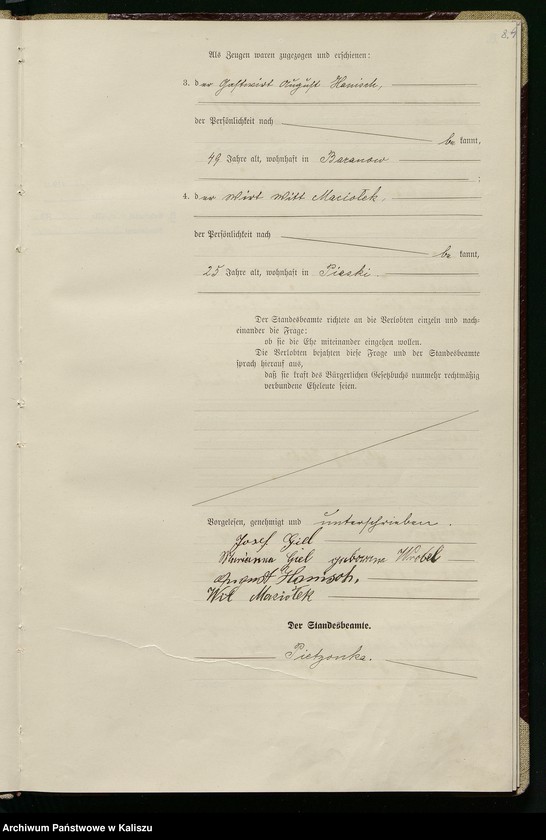 Als Zeugen waren zugezogen und erschienen:
3. der Gastwirt August Hanisch,
der Persönlichkeit nach
be kannt,
49 Jahre alt, wohnhaft in Baranow
;
4. der Wirt Witt Maciolek,
der Persönlichkeit nach
be kannt,
25 Jahre alt, wohnhaft in Piaski
Der Standesbeamte richtete an die Verlobten einzeln und nach-
einander die Frage:
ob sie die Ehe miteinander eingehen wollen.
Die Verlobten bejahten diese Frage und der Standesbeamte
sprach hierauf aus,
daß sie kraft des Bürgerlichen Gesetzbuchs nunmehr rechtmäßig
verbundene Eheleute seien.
Vorgelesen, genehmigt und unterschrieben.
Josef Giel
Marianna Giel geborene Wrobel
August Hanisch.
Wit Maciołek
Der Standesbeamte.
Pietzonka.
Archiwum Państwowe w Kaliszu